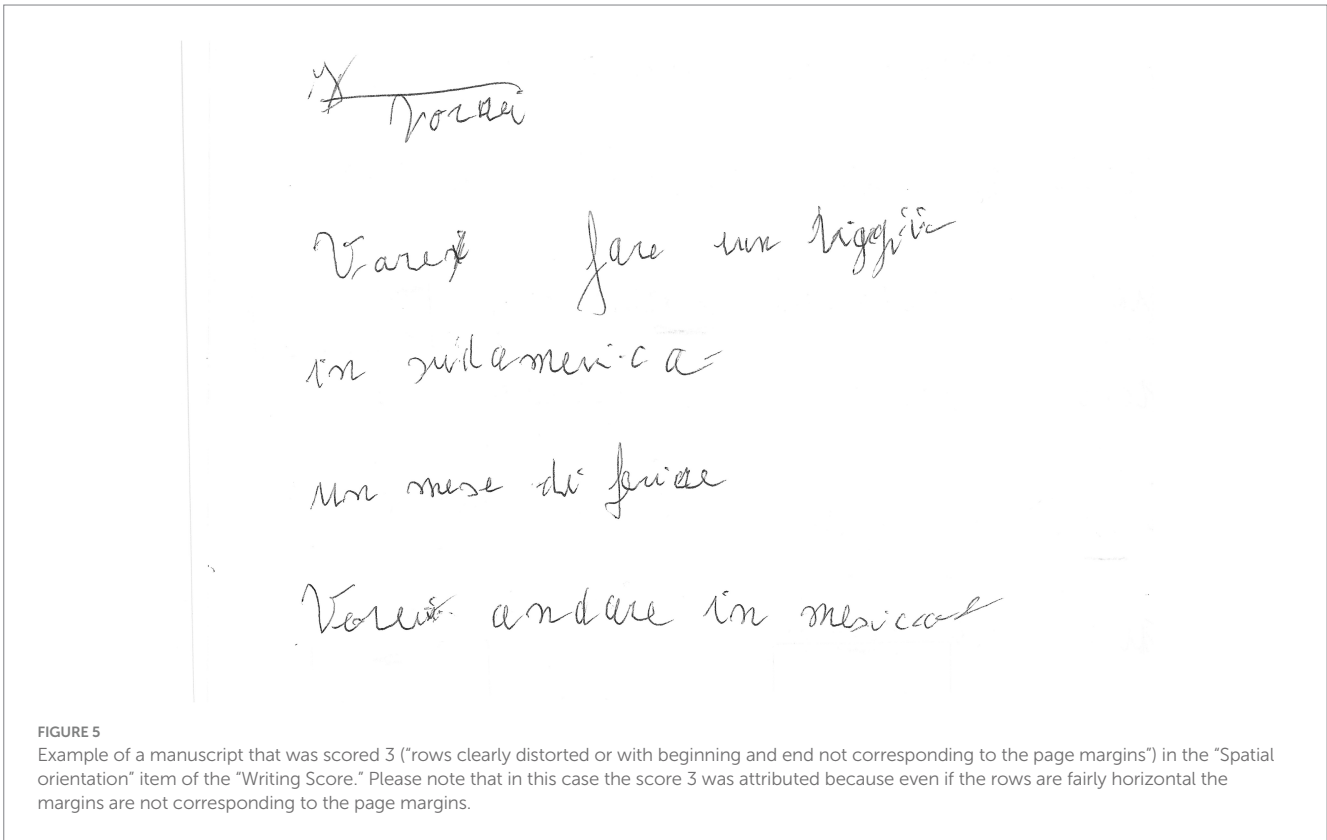 Vorrei
Vare fare un
in sudamerica
un mese di feriae
Vorei andare in
FIGURE 5
Example of a manuscript that was scored 3 (“rows clearly distorted or with beginning and end not corresponding to the page margins”) in the “Spatial
orientation” item of the “Writing Score.” Please note that in this case the score 3 was attributed because even if the rows are fairly horizontal the
margins are not corresponding to the page margins.